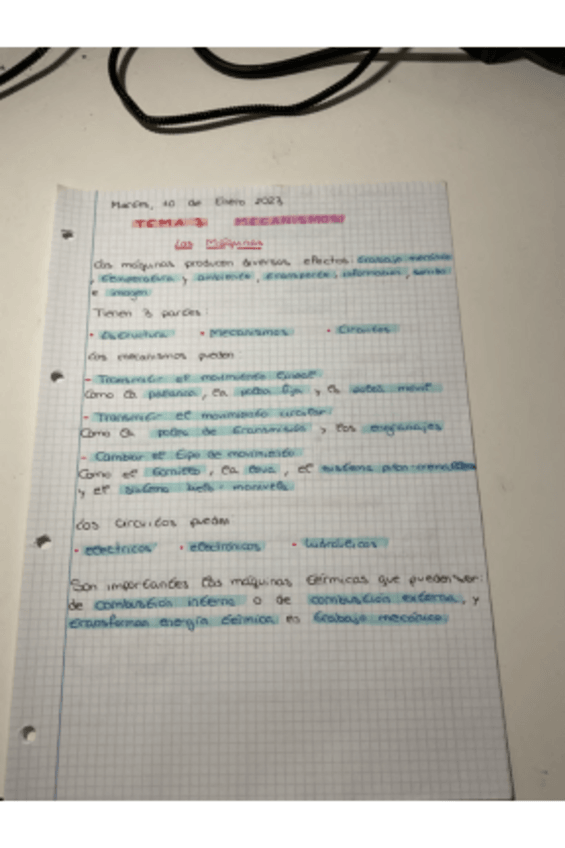 Martes, 10 de Enero 2023
TEMA 3 MECANISMOS
Las Máquinas
Las máquinas producen diversos efectos: trabajo mecánico
, temperatura y ambiente, transporte, información, sonido
e imagen
Tienen 3 partes
• Estructura • Mecanismos • Circuitos
Los mecanismos pueden
- Transmitir el movimiento lineal
Como la palanca, la polea fija y la polea móvil
- Transmitir el movimiento circular
Como la polea de transmisión y los engranajes
- Cambiar el tipo de movimiento
Como el tornillo, la leva, el sistema piñón-cremallera
y el sistema biela-manivela
Los circuitos pueden
• eléctricos • electrónicos • hidráulicos
Son importantes las máquinas térmicas que pueden ser:
de combustión interna o de combustión externa, y
transforman energía térmica es trabajo mecánico.